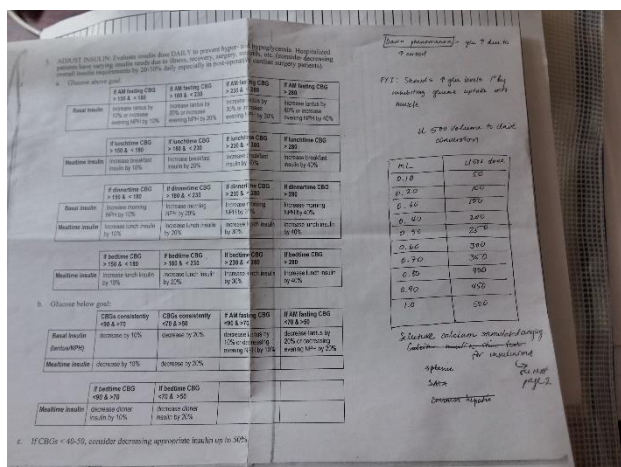 3. ADJUST INSULIN: Evaluate insulin dose DAILY to prevent hyper- and hypoglycemia. Hospitalized
patients have varying insulin needs due to illness, recovery, surgery, etc. (consider decreasing
overall insulin requirements by 20-50% daily especially in post-operative cardiac surgery patients)
a. Glucose above goal:
If AM fasting CBG > 150 & < 180
If AM fasting CBG > 180 & < 230
If AM fasting CBG > 230 & < 280
If AM fasting CBG > 280
Basal Insulin
Increase lantus by 10% or increase evening NPH by 10%
Increase lantus by 20% or increase evening NPH by 20%
Increase lantus by 30% or increase evening NPH by 30%
Increase lantus by 40% or increase evening NPH by 40%
If lunchtime CBG > 150 & < 180
If lunchtime CBG > 180 & < 230
If lunchtime CBG > 230 & < 280
If lunchtime CBG > 280
Mealtime insulin
Increase breakfast insulin by 10%
Increase breakfast insulin by 20%
Increase breakfast insulin by 30%
Increase breakfast insulin by 40%
If dinnertime CBG > 150 & < 180
If dinnertime CBG > 180 & < 230
If dinnertime CBG > 230 & < 280
If dinnertime CBG > 280
Basal Insulin
Increase morning NPH by 10%
Increase morning NPH by 20%
Increase morning NPH by 30%
Increase morning NPH by 40%
Mealtime insulin
Increase lunch insulin by 10%
Increase lunch insulin by 20%
Increase lunch insulin by 30%
Increase lunch insulin by 40%
If bedtime CBG > 150 & < 180
If bedtime CBG > 180 & < 230
If bedtime CBG > 230 & < 280
If bedtime CBG > 280
Mealtime insulin
Increase lunch insulin by 10%
Increase lunch insulin by 20%
Increase lunch insulin by 30%
Increase lunch insulin by 40%
b. Glucose below goal:
CBGs consistently <90 & >70
CBGs consistently <70 & >50
If AM fasting CBG <90 & >70
If AM fasting CBG <70 & >50
Basal Insulin (lantus/NPH)
decrease by 10%
decrease by 20%
decrease lantus by 10% or decreasing evening NPH by 10%
decrease lantus by 20% or decreasing evening NPH by 20%
Mealtime insulin
decrease by 10%
decrease by 20%
If bedtime CBG <90 & >70
If bedtime CBG <70 & >50
Mealtime insulin
decrease dinner insulin by 10%
decrease dinner insulin by 20%
c. If CBGs < 40-50, consider decreasing appropriate insulin up to 50%.
Dawn phenomenon - glu ↑ due to
↑ cortisol
FYI: Steroids ↑ glu levels by
inhibiting glucose uptake into
muscle
U 500 Volume to dose
conversion
mL U500 dose
0.10 50
0.20 100
200
250
0.60 300
0.70 350
0.90 450
1.0 500
Selective calcium stimulated angiog
for insulinoma
splenic
SMA
page 2